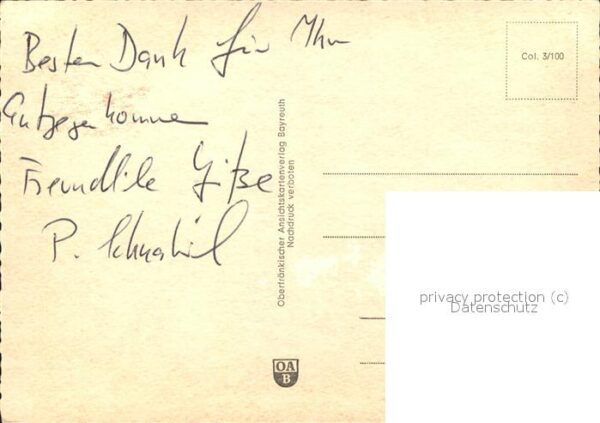 Besten Dank für Ihr
Entgegenkommen
Freundliche Grüße
P.
Col. 3/100
Oberfränkischer Ansichtskartenverlag Bayreuth
Nachdruck verboten
OA
B
privacy protection (c)
Datenschutz